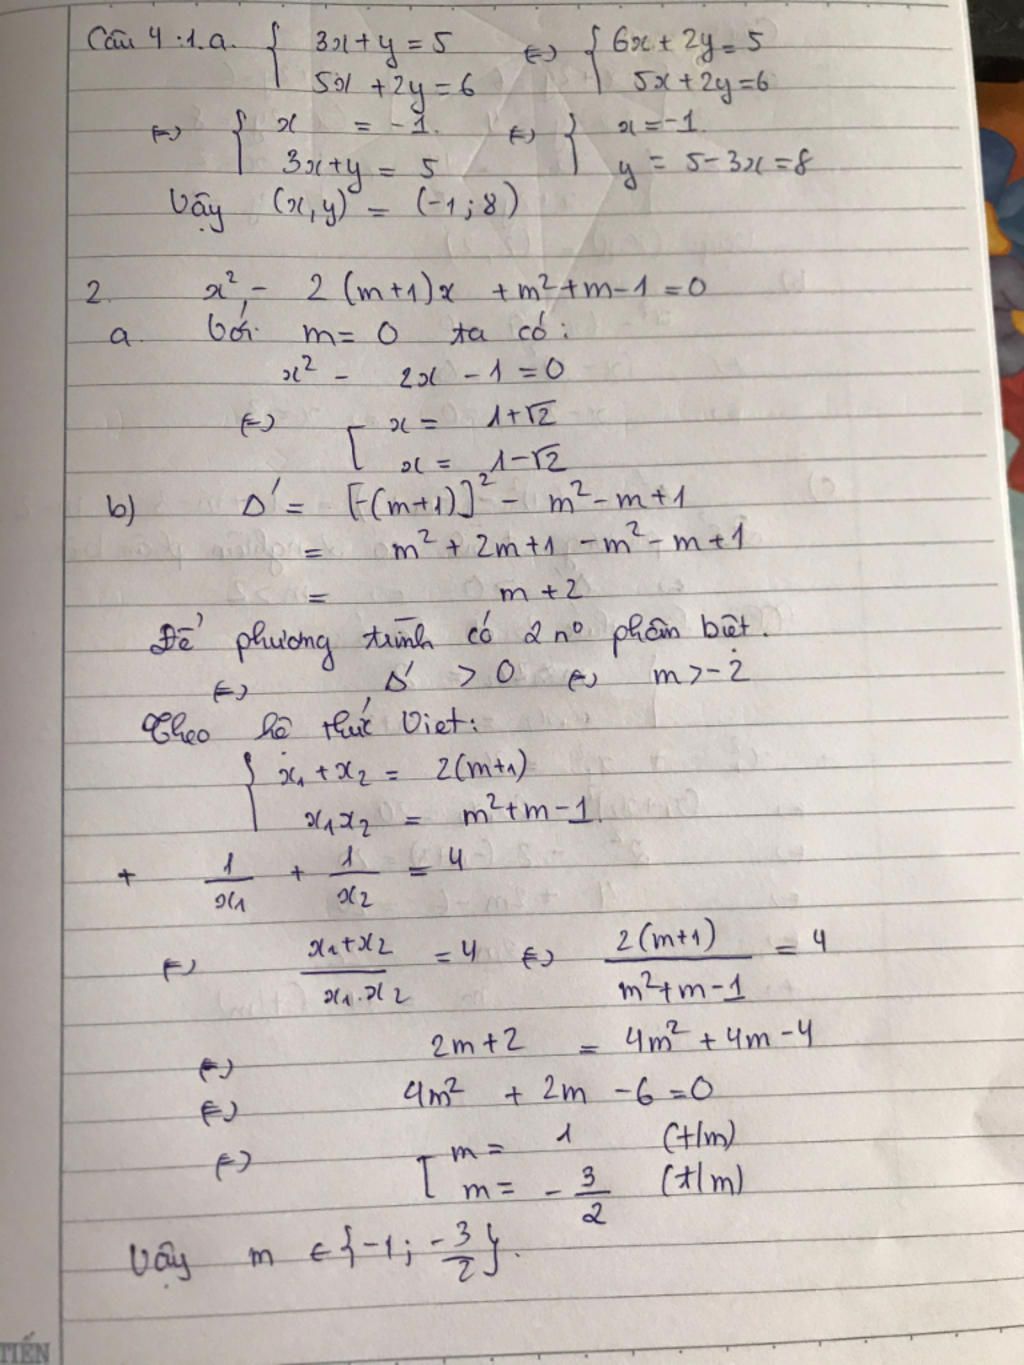 Câu 4:1.a. { 3x+y=5 ⇔ { 6x+2y=5
5x+2y=6 5x+2y=6
⇔ { x = -1. ⇔ } x=-1.
3x+y = 5 y = 5-3x=8
Vậy (x,y) = (-1;8)
2. x² - 2(m+1)x +m²+m-1=0
a. Với m=0 ta có:
x² - 2x -1=0
⇔ [ x = 1+√2
x = 1-√2
b) Δ' = [-(m+1)]² - m²-m+1
= m²+2m+1 -m²-m+1
= m+2
Để phương trình có 2 n⁰ phân biệt.
⇔ Δ' > 0 ⇔ m>-2
Theo hệ thức Viet:
{ x₁+x₂ = 2(m+1)
x₁x₂ = m²+m-1.
+ 1/x₁ + 1/x₂ = 4
⇔ (x₁+x₂)/(x₁.x₂) = 4 ⇔ 2(m+1)/(m²+m-1) = 4
⇔ 2m+2 = 4m²+4m-4
⇔ 4m² + 2m -6=0
⇔ [ m = 1 (t/m)
m = -3/2 (t/m)
Vậy m ∈ {-1; -3/2}.
TIẾN